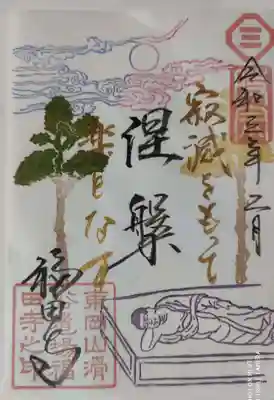 令和三年二月
寂滅をもって
涅槃
楽となす
福田寺
東岡山滑
谷道場福
田寺之印